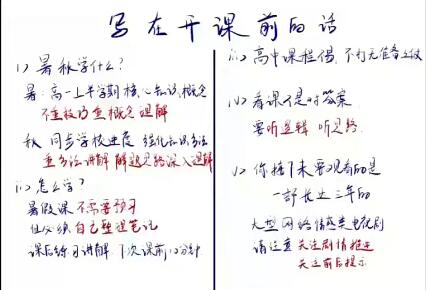 写在开课前的话
i) 暑秋学什么?
暑:高一上半学期核心知识、概念
不重技巧重概念理解
秋 同步学校进度 强化知识方法
重方法讲解 解题思路深入理解
ii) 怎么学?
暑假课不需要预习
但必须自己整理笔记
课后练习讲解 下次课前10分钟
iii) 高中课程偶 不打无准备之仗
iv) 看课不是对答案
要听逻辑 听思路
v) 你接下来要观看的是
一部长达三年的
大型网络情感类电视剧
请注意 关注剧情推进
关注前后提示